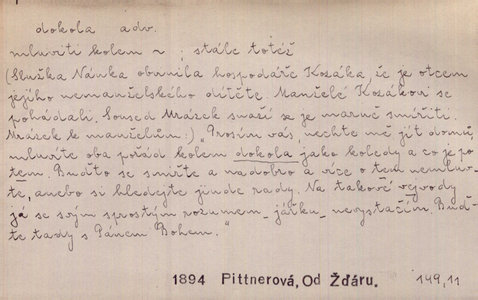 dokola adv.
mluviti kolem ~ : stále totéž
(Služka Nánka obvinila hospodáře Kozáka, že je otcem
jejího nemanželského dítěte. Manželé Kozákovi se
pohádali. Soused Mrázek snaží se je marně smířiti.
Mrázek k manželům:) „Prosím vás, nechte mě jít domů,
mluvíte oba pořád kolem dokola jako koledy a co je po
tem. Buďto se smiřte a nadobro a více o tem nemluv-
te, anebo si hledejte jinde rady. Na takové vývody
já se svým sprostým rozumem - jářku - nevystačím. Buď-
te tady s Pánem Bohem."
1894 Pittnerová, Od Žďáru. 149,11